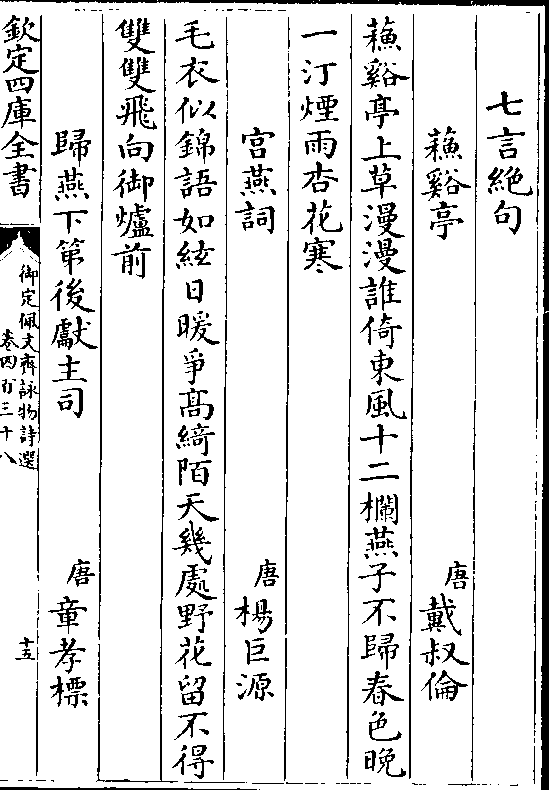 七言絶句
蘓谿亭
唐戴叔倫
蘓谿亭上草漫漫誰倚東風十二欄燕子不歸春色晩
一汀煙雨杏花寒
宮燕詞
唐楊巨源
毛衣似錦語如絃日暖爭髙綺陌天幾處野花留不得
雙雙飛向御爐前
歸燕下第後獻主司
唐童孝標
欽定四庫全書
御定佩文齋詠物詩選
卷四百三十八
十五